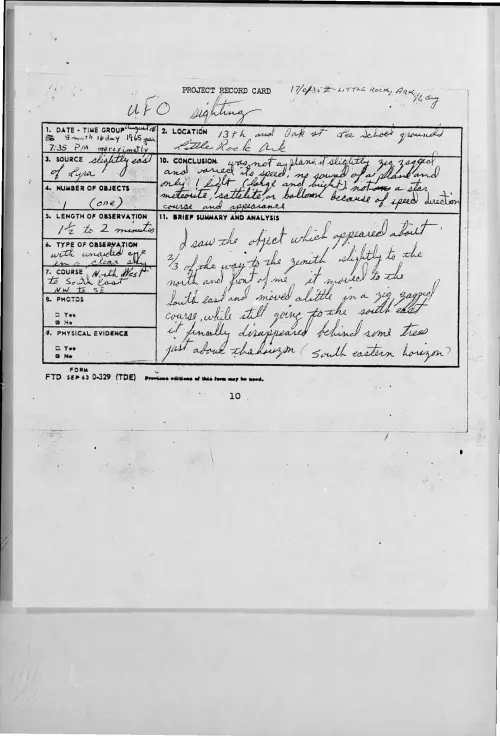 PROJECT RECORD CARD
17/0135 Z - LITTLE ROCK, ARK
16 Aug
UFO sighting
1. DATE - TIME GROUP August 16
8 month 16 day 1965 year
7:35 P.M approximetly
2. LOCATION 13th and Oak st Lee School grounds
Little Rock Ark
3. SOURCE slightly east
of Lyra
10. CONCLUSION was not a plane, it slightly zig zagged
and varied its speed, no sound of a plane and
only 1 light (large and bright) not a star
meteorite, sattelite, or balloon because of speed direction
course and appearance
4. NUMBER OF OBJECTS
1 (one)
5. LENGTH OF OBSERVATION
1½ to 2 minutes
11. BRIEF SUMMARY AND ANALYSIS
I saw the object which appeared about
2/3 of the way to the zenith slightly to the
north and front of me, it moved to the
south east and moved a little in a zig zagged
course, while still going to the south east
it finally disappeared behind some trees
just above the horizon (South eastern horizon)
6. TYPE OF OBSERVATION
with unaided eye
in a clear sky
7. COURSE North West
to South East
NW TO SE
8. PHOTOS
□ Yes
☒ No
9. PHYSICAL EVIDENCE
□ Yes
☒ No
FORM
FTD SEP 63 0-329 (TDE) Previous editions of this form may be used.
10